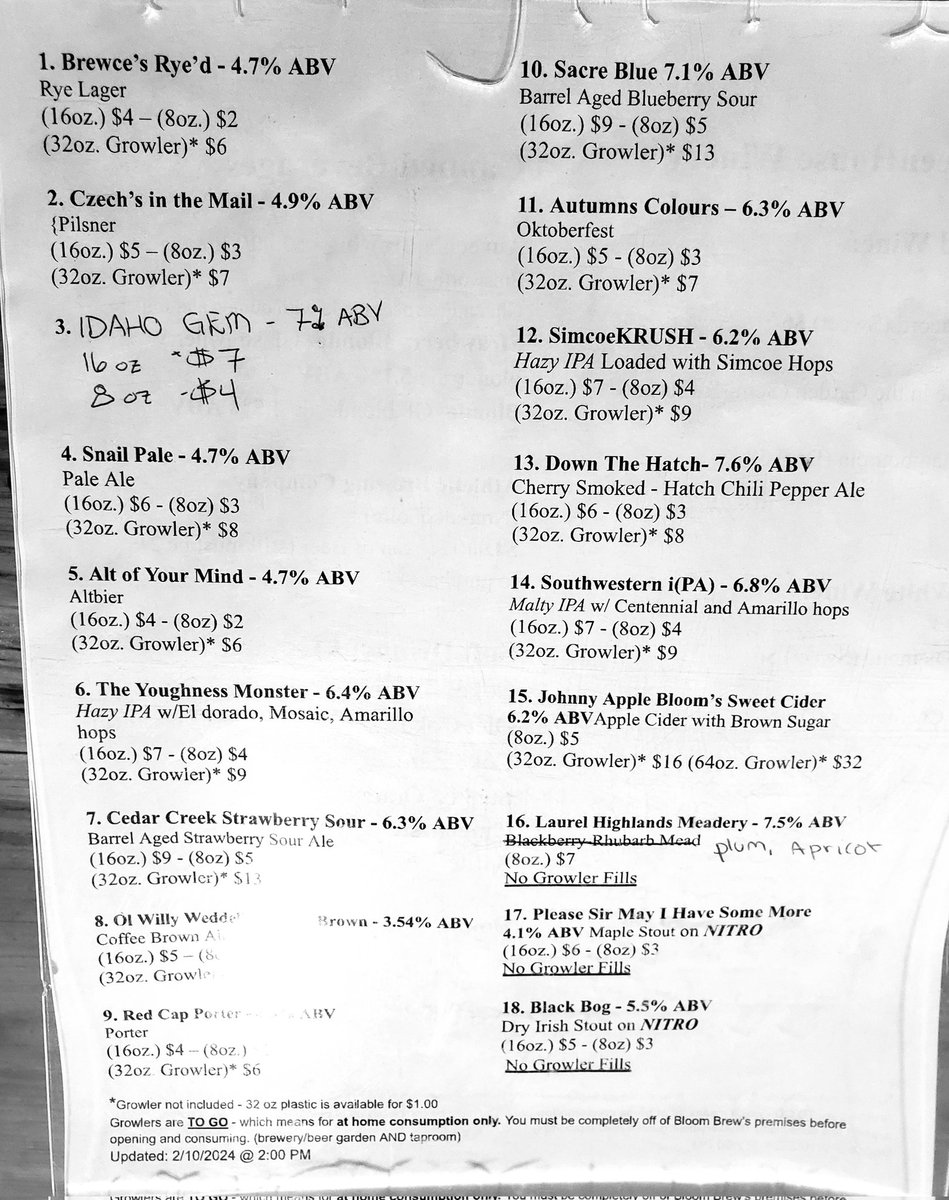 1. Brewce's Rye'd - 4.7% ABV
Rye Lager
(16oz.) $4 – (8oz.) $2
(32oz. Growler)* $6
2. Czech's in the Mail - 4.9% ABV
{Pilsner
(16oz.) $5 – (8oz.) $3
(32oz. Growler)* $7
3. IDAHO GEM - 7% ABV
16 oz - $7
8 oz - $4
4. Snail Pale - 4.7% ABV
Pale Ale
(16oz.) $6 - (8oz) $3
(32oz. Growler)* $8
5. Alt of Your Mind - 4.7% ABV
Altbier
(16oz.) $4 - (8oz) $2
(32oz. Growler)* $6
6. The Youghness Monster - 6.4% ABV
Hazy IPA w/El dorado, Mosaic, Amarillo
hops
(16oz.) $7 - (8oz) $4
(32oz. Growler)* $9
7. Cedar Creek Strawberry Sour - 6.3% ABV
Barrel Aged Strawberry Sour Ale
(16oz.) $9 - (8oz) $5
(32oz. Growler)* $13
8. Ol Willy Brown - 3.54% ABV
Coffee Brown
(16oz.) $5 –
(32oz.
9. Red Cap Porter - ABV
Porter
(16oz.) $4 – (8oz.)
(32oz Growler)* $6
10. Sacre Blue 7.1% ABV
Barrel Aged Blueberry Sour
(16oz.) $9 - (8oz) $5
(32oz. Growler)* $13
11. Autumns Colours – 6.3% ABV
Oktoberfest
(16oz.) $5 - (8oz) $3
(32oz. Growler)* $7
12. SimcoeKRUSH - 6.2% ABV
Hazy IPA Loaded with Simcoe Hops
(16oz.) $7 - (8oz) $4
(32oz. Growler)* $9
13. Down The Hatch- 7.6% ABV
Cherry Smoked - Hatch Chili Pepper Ale
(16oz.) $6 - (8oz) $3
(32oz. Growler)* $8
14. Southwestern i(PA) - 6.8% ABV
Malty IPA w/ Centennial and Amarillo hops
(16oz.) $7 - (8oz) $4
(32oz. Growler)* $9
15. Johnny Apple Bloom's Sweet Cider
6.2% ABVApple Cider with Brown Sugar
(8oz.) $5
(32oz. Growler)* $16 (64oz. Growler)* $32
16. Laurel Highlands Meadery - 7.5% ABV
Blackberry-Rhubarb Mead plum, Apricot
(8oz.) $7
No Growler Fills
17. Please Sir May I Have Some More
4.1% ABV Maple Stout on NITRO
(16oz.) $6 - (8oz) $3
No Growler Fills
18. Black Bog - 5.5% ABV
Dry Irish Stout on NITRO
(16oz.) $5 - (8oz) $3
No Growler Fills
*Growler not included - 32 oz plastic is available for $1.00
Growlers are TO GO - which means for at home consumption only. You must be completely off of Bloom Brew's premises before
opening and consuming. (brewery/beer garden AND taproom)
Updated: 2/10/2024 @ 2:00 PM